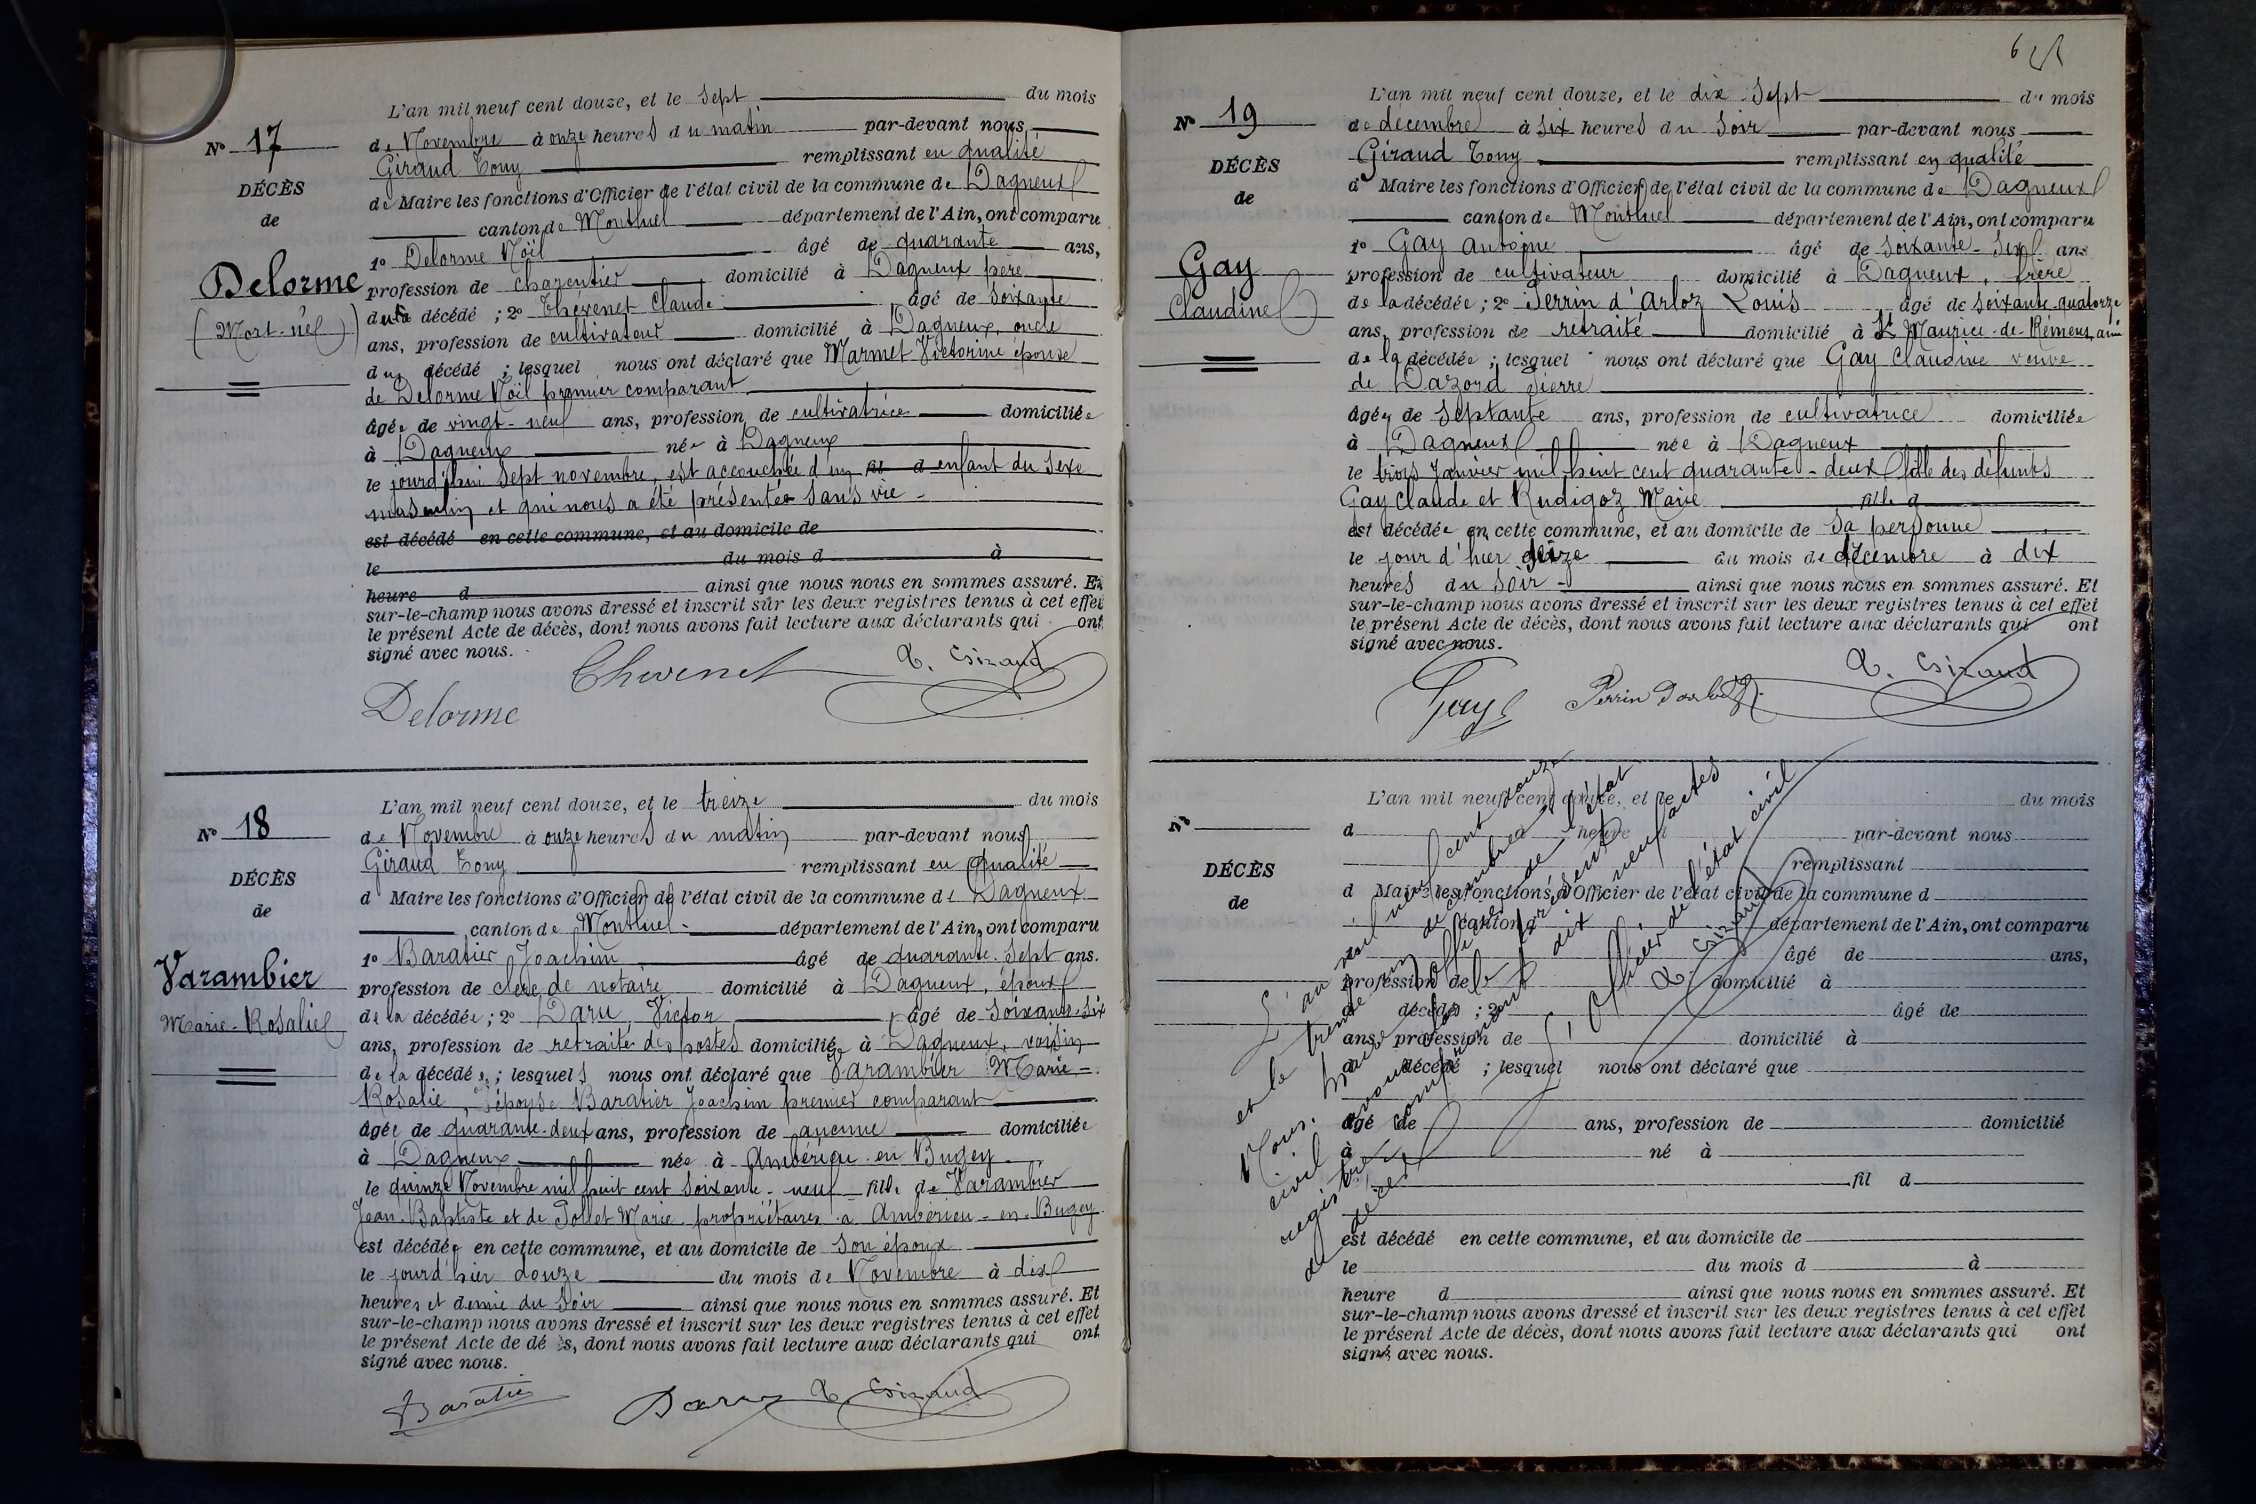 N° 17
DÉCÈS
de
Delorme
(Mort-né)
L'an mil neuf cent douze, et le sept du mois
de Novembre à onze heures du matin par-devant nous
Giraud Tony remplissant en qualité
de Maire les fonctions d'Officier de l'état civil de la commune de Dagneux
canton de Montluel département de l'Ain, ont comparu
1° Delorme Noël âgé de quarante ans,
profession de charpentier domicilié à Dagneux père
du décédé ; 2° Thévenet Claude âgé de soixante
ans, profession de cultivateur domicilié à Dagneux, oncle
du décédé ; lesquel nous ont déclaré que Marmet Victorine épouse
de Delorme Noël premier comparant
âgée de vingt-neuf ans, profession de cultivatrice domiciliée
à Dagneux née à Dagneux
le jourd'hui sept novembre, est accouchée d'un fil d enfant du sexe
masculin et qui nous a été présenté sans vie
est décédé en cette commune, et au domicile de
le du mois d à
heure d ainsi que nous nous en sommes assuré. Et
sur-le-champ nous avons dressé et inscrit sur les deux registres tenus à cet effet
le présent Acte de décès, dont nous avons fait lecture aux déclarants qui ont
signé avec nous.
Thevenet T. Giraud
Delorme
N° 18
DÉCÈS
de
Varambier
Marie-Rosalie
L'an mil neuf cent douze, et le treize du mois
de Novembre à onze heures du matin par-devant nous
Giraud Tony remplissant en qualité
d Maire les fonctions d'Officier de l'état civil de la commune de Dagneux
canton de Montluel département de l'Ain, ont comparu
1° Baratier Joachim âgé de quarante-sept ans.
profession de clerc de notaire domicilié à Dagneux, époux
de la décédée ; 2° Daru, Victor âgé de soixante-six
ans, profession de retraité des postes domicilié à Dagneux, voisin
de la décédée ; lesquels nous ont déclaré que Varambier Marie-
Rosalie, épouse Baratier Joachim premier comparant
âgée de quarante-deux ans, profession de aucune domiciliée
à Dagneux née à Ambérieu en Bugey
le quinze Novembre mil huit cent soixante-neuf fille de Varambier
Jean-Baptiste et de Pollet Marie propriétaires à Ambérieu-en-Bugey
est décédée en cette commune, et au domicile de son époux
le jourd'hier douze du mois de Novembre à dix
heures et demie du soir ainsi que nous nous en sommes assuré. Et
sur-le-champ nous avons dressé et inscrit sur les deux registres tenus à cet effet
le présent Acte de dé ès, dont nous avons fait lecture aux déclarants qui ont
signé avec nous.
Baratier Daru T. Giraud
6
N° 19
DÉCÈS
de
Gay
Claudine
L'an mil neuf cent douze, et le dix-sept du mois
de décembre à six heures du soir par-devant nous
Giraud Tony remplissant en qualité
d Maire les fonctions d'Officier de l'état civil de la commune de Dagneux
canton de Montluel département de l'Ain, ont comparu
1° Gay Antoine âgé de soixante-six ans
profession de cultivateur domicilié à Dagneux, frère
de la décédée ; 2° Perrin d'Arloz Louis âgé de soixante-quatorze
ans, profession de retraité domicilié à St Maurice-de-Rémens, ami
de la décédée ; lesquel nous ont déclaré que Gay Claudine veuve
de Dazord Pierre
âgée de septante ans, profession de cultivatrice domiciliée
à Dagneux née à Dagneux
le trois Janvier mil huit cent quarante-deux fille des défunts
Gay Claude et Rudigoz Marie fille d
est décédée en cette commune, et au domicile de sa personne
le jour d'hier seize du mois de décembre à dix
heures du soir ainsi que nous nous en sommes assuré. Et
sur-le-champ nous avons dressé et inscrit sur les deux registres tenus à cet effet
le présent Acte de décès, dont nous avons fait lecture aux déclarants qui ont
signé avec nous.
Gay Perrin d'arloz T. Giraud
N°
DÉCÈS
de
L'an mil neuf cent douze, et le du mois
d heure d par-devant nous
remplissant
d Maire les fonctions d'Officier de l'état civil de la commune d
canton d département de l'Ain, ont comparu
âgé de ans,
profession de domicilié à
d décédé ; 2° âgé de
ans, profession de domicilié à
d décédé ; lesquel nous ont déclaré que
âgé de ans, profession de domicilié
à né à
fil d
est décédé en cette commune, et au domicile de
le du mois d à
heure d ainsi que nous nous en sommes assuré. Et
sur-le-champ nous avons dressé et inscrit sur les deux registres tenus à cet effet
le présent Acte de décès, dont nous avons fait lecture aux déclarants qui ont
signé avec nous.
L'an mil neuf cent douze
et le trente un décembre
Nous, Maire officier de l'état
civil avons clos le présent
registre contenant dix neuf actes
de décès
L'officier de l'état civil
T. Giraud